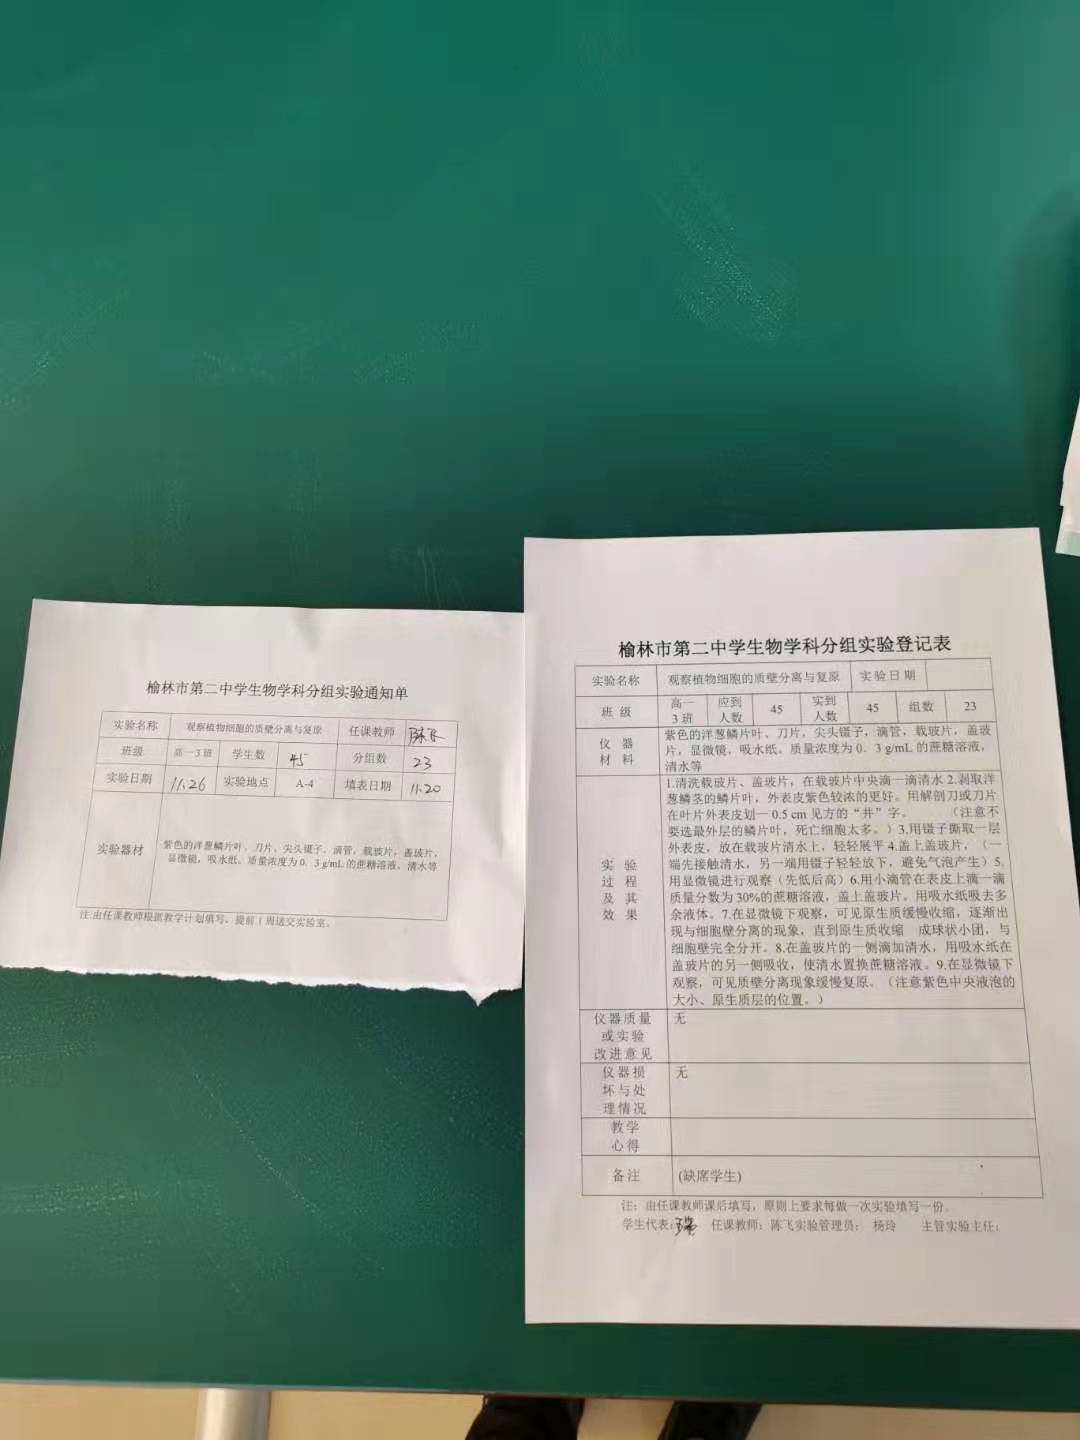 榆林市第二中学生物学科分组实验通知单
实验名称 观察植物细胞的质壁分离与复原 任课教师 陈飞
班级 高一3班 学生数 45 分组数 23
实验日期 11.26 实验地点 A-4 填表日期 11.20
实验器材 紫色的洋葱鳞片叶、刀片、尖头镊子，滴管，载玻片，盖玻片，
显微镜，吸水纸。质量浓度为0．3 g/mL的蔗糖溶液，清水等
注:由任课教师根据教学计划填写，提前1周送交实验室。
榆林市第二中学生物学科分组实验登记表
实验名称 观察植物细胞的质壁分离与复原 实验日期
班 级 高一3班 应到人数 45 实到人数 45 组数 23
仪 器 材 料 紫色的洋葱鳞片叶、刀片，尖头镊子，滴管，载玻片，盖玻
片，显微镜，吸水纸。质量浓度为0．3 g/mL的蔗糖溶液，
清水等
实 验 过 程 及 其 效 果
1.清洗载玻片、盖玻片，在载玻片中央滴一滴清水 2.剥取洋
葱鳞茎的鳞片叶，外表皮紫色较浓的更好。用解剖刀或刀片
在叶片外表皮划一 0.5 cm见方的“井”字。 （注意不
要选最外层的鳞片叶，死亡细胞太多。）3.用镊子撕取一层
外表皮，放在载玻片清水上，轻轻展平 4.盖上盖玻片，（一
端先接触清水，另一端用镊子轻轻放下，避免气泡产生）5.
用显微镜进行观察（先低后高）6.用小滴管在表皮上滴一滴
质量分数为30%的蔗糖溶液，盖上盖玻片。用吸水纸吸去多
余液体。7.在显微镜下观察，可见原生质缓慢收缩，逐渐出
现与细胞壁分离的现象，直到原生质收缩 成球状小团，与
细胞壁完全分开。8.在盖玻片的一侧滴加清水，用吸水纸在
盖玻片的另一侧吸收，使清水置换蔗糖溶液。9.在显微镜下
观察，可见质壁分离现象缓慢复原。（注意紫色中央液泡的
大小、原生质层的位置。）
仪器质量或实验改进意见 无
仪器损坏与处理情况 无
教学心得
备注 (缺席学生)
注：由任课教师课后填写，原则上要求每做一次实验填写一份。
学生代表: 任课教师：陈飞实验管理员： 杨玲 主管实验主任：